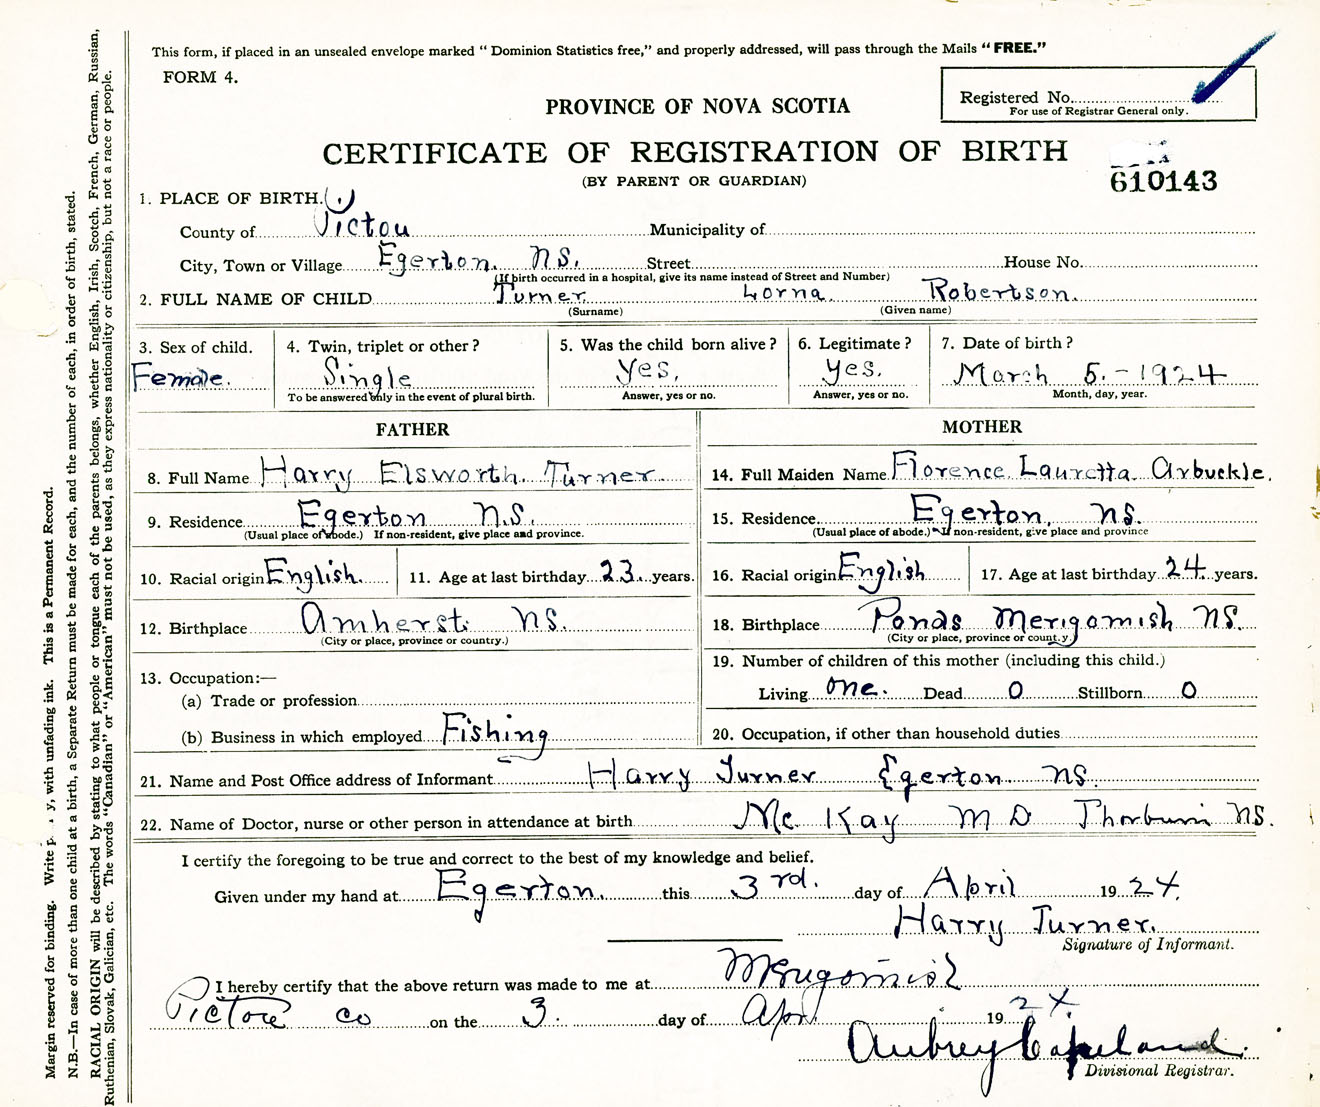 This form, if placed in an unsealed envelope marked “ Dominion Statistics free,” and properly addressed, will pass through the Mails “ FREE.”
FORM 4.
Registered No.
For use of Registrar General only.
PROVINCE OF NOVA SCOTIA
CERTIFICATE OF REGISTRATION OF BIRTH
(BY PARENT OR GUARDIAN)
610143
1. PLACE OF BIRTH.
County of Pictou Municipality of
City, Town or Village Egerton. NS. Street House No.
(If birth occurred in a hospital, give its name instead of Street and Number)
2. FULL NAME OF CHILD Turner Lorna Robertson.
(Surname) (Given name)
3. Sex of child. 4. Twin, triplet or other? 5. Was the child born alive? 6. Legitimate? 7. Date of birth?
Female. Single Yes, Yes. March 5.-1924
To be answered only in the event of plural birth. Answer, yes or no. Answer, yes or no. Month, day, year.
FATHER MOTHER
8. Full Name Harry Elsworth. Turner 14. Full Maiden Name Florence Lauretta Arbuckle.
9. Residence Egerton N.S. 15. Residence Egerton, NS.
(Usual place of abode.) If non-resident, give place and province. (Usual place of abode.) If non-resident, give place and province
10. Racial origin English. 11. Age at last birthday 23 years. 16. Racial origin English 17. Age at last birthday 24 years.
12. Birthplace Amherst. NS. 18. Birthplace Ponds Merigomish NS.
(City or place, province or country.) (City or place, province or country.)
13. Occupation:— 19. Number of children of this mother (including this child.)
(a) Trade or profession Living one. Dead 0 Stillborn 0
(b) Business in which employed Fishing 20. Occupation, if other than household duties
21. Name and Post Office address of Informant Harry Turner Egerton NS.
22. Name of Doctor, nurse or other person in attendance at birth Mc Kay M D Thorburn NS.
I certify the foregoing to be true and correct to the best of my knowledge and belief.
Given under my hand at Egerton. this 3rd. day of April 1924.
Harry Turner.
Signature of Informant.
I hereby certify that the above return was made to me at Merigomish
Pictou co on the 3. day of Apr 1924.
Aubrey Copeland.
Divisional Registrar.
Margin reserved for binding. Write y, with unfading ink. This is a Permanent Record.
N.B.—In case of more than one child at a birth, a Separate Return must be made for each, and the number of each, in order of birth, stated.
RACIAL ORIGIN will be described by stating to what people or tongue each of the parents belongs, whether English, Irish, Scotch, French, German, Russian,
Ruthenian, Slovak, Galician, etc. The words “Canadian” or “American” must not be used, as they express nationality or citizenship, but not a race or people.